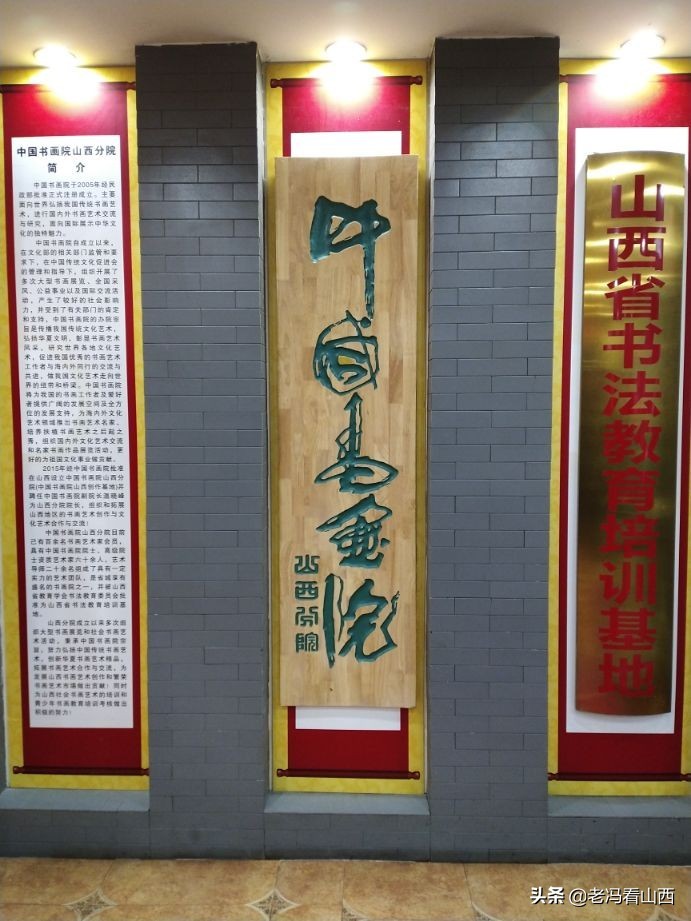 中国书画院山西分院
简介
中国书画院于2005年经民
政部批准正式注册成立。主要
面向世界弘扬我国传统书画艺
术，进行国内外书画艺术交流
与研究，面向国际展示中华文
化的独特魅力。
中国书画院自成立以来，
在文化部的相关部门监管和要
求下，在中国传统文化促进会
的管理和指导下，组织开展了
多次大型书画展览、全国采
风、公益事业以及国际交流活
动，产生了较好的社会影响
力，并受到了有关部门的肯定
和支持。中国书画院的办院宗
旨是传播我国传统文化艺术，
弘扬华夏文明，彰显书画艺术
风采，研究世界各地文化艺
术，促进我国优秀的书画艺术
工作者与海内外同行的交流与
共进，做我国文化艺术走向世
界的纽带和桥梁。中国书画院
将为我国的书画工作者及爱好
者提供广阔的发展空间及全方
位的发展支持，为海内外文化
艺术领域推出书画艺术名家，
培养扶植书画艺术之后起之
秀，组织国内外文化艺术交流
和名家书画作品展览活动，更
好的为祖国文化事业做贡献。
2015年经中国书画院批准
在山西设立中国书画院山西分
院(中国书画院山西创作基地)并
聘任中国书画院副院长温晓峰
为山西分院院长，组织和拓展
山西地区的书画艺术创作与文
化艺术合作与交流！
中国书画院山西分院目前
已有百余名书画艺术家会员，
具有中国书画院院士、高级院
士资质艺术家六十余人，艺术
导师二十余名组成了具有一定
实力的艺术团队，是省城享有
盛名的书画院之一，并被山西
省教育学会书法教育委员会批
准为山西省书法教育培训基
地。
山西分院成立以来多次组
织大型书画展览和社会书画艺
术活动，秉承中国书画院宗
旨，努力弘扬中国传统书画艺
术，创新华夏书画艺术精品，
拓展书画艺术合作与交流，为
发展山西书画艺术创作和繁荣
书画艺术市场做出贡献！同时
为山西社会书画艺术的培训和
青少年书画教育培训考核做出
积极的努力！
中国书画院
山西分院
山西省书法教育培训基地
头条@老冯看山西